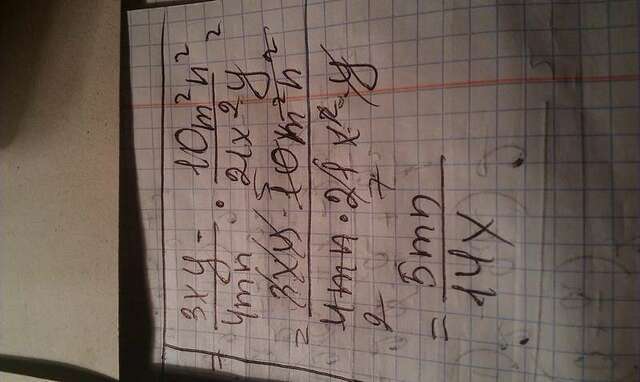 = 3xy/4mn · 10m²n²/21x²y
= 3xy · 10m²n²
5
4mn · 21x²y
2 7
= 5mn/14x